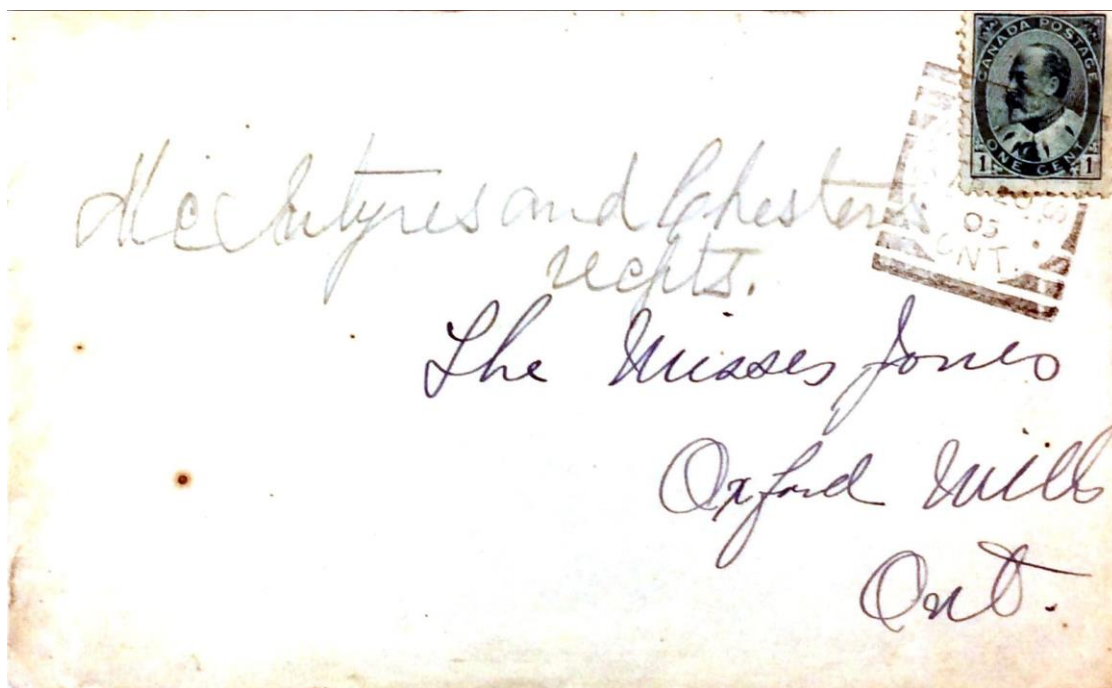 CANADA POSTAGE
ONE CENT
1 1
05
ONT.
McIntyres and Chesters
recpts.
The Misses Jones
Oxford Mills
Ont.